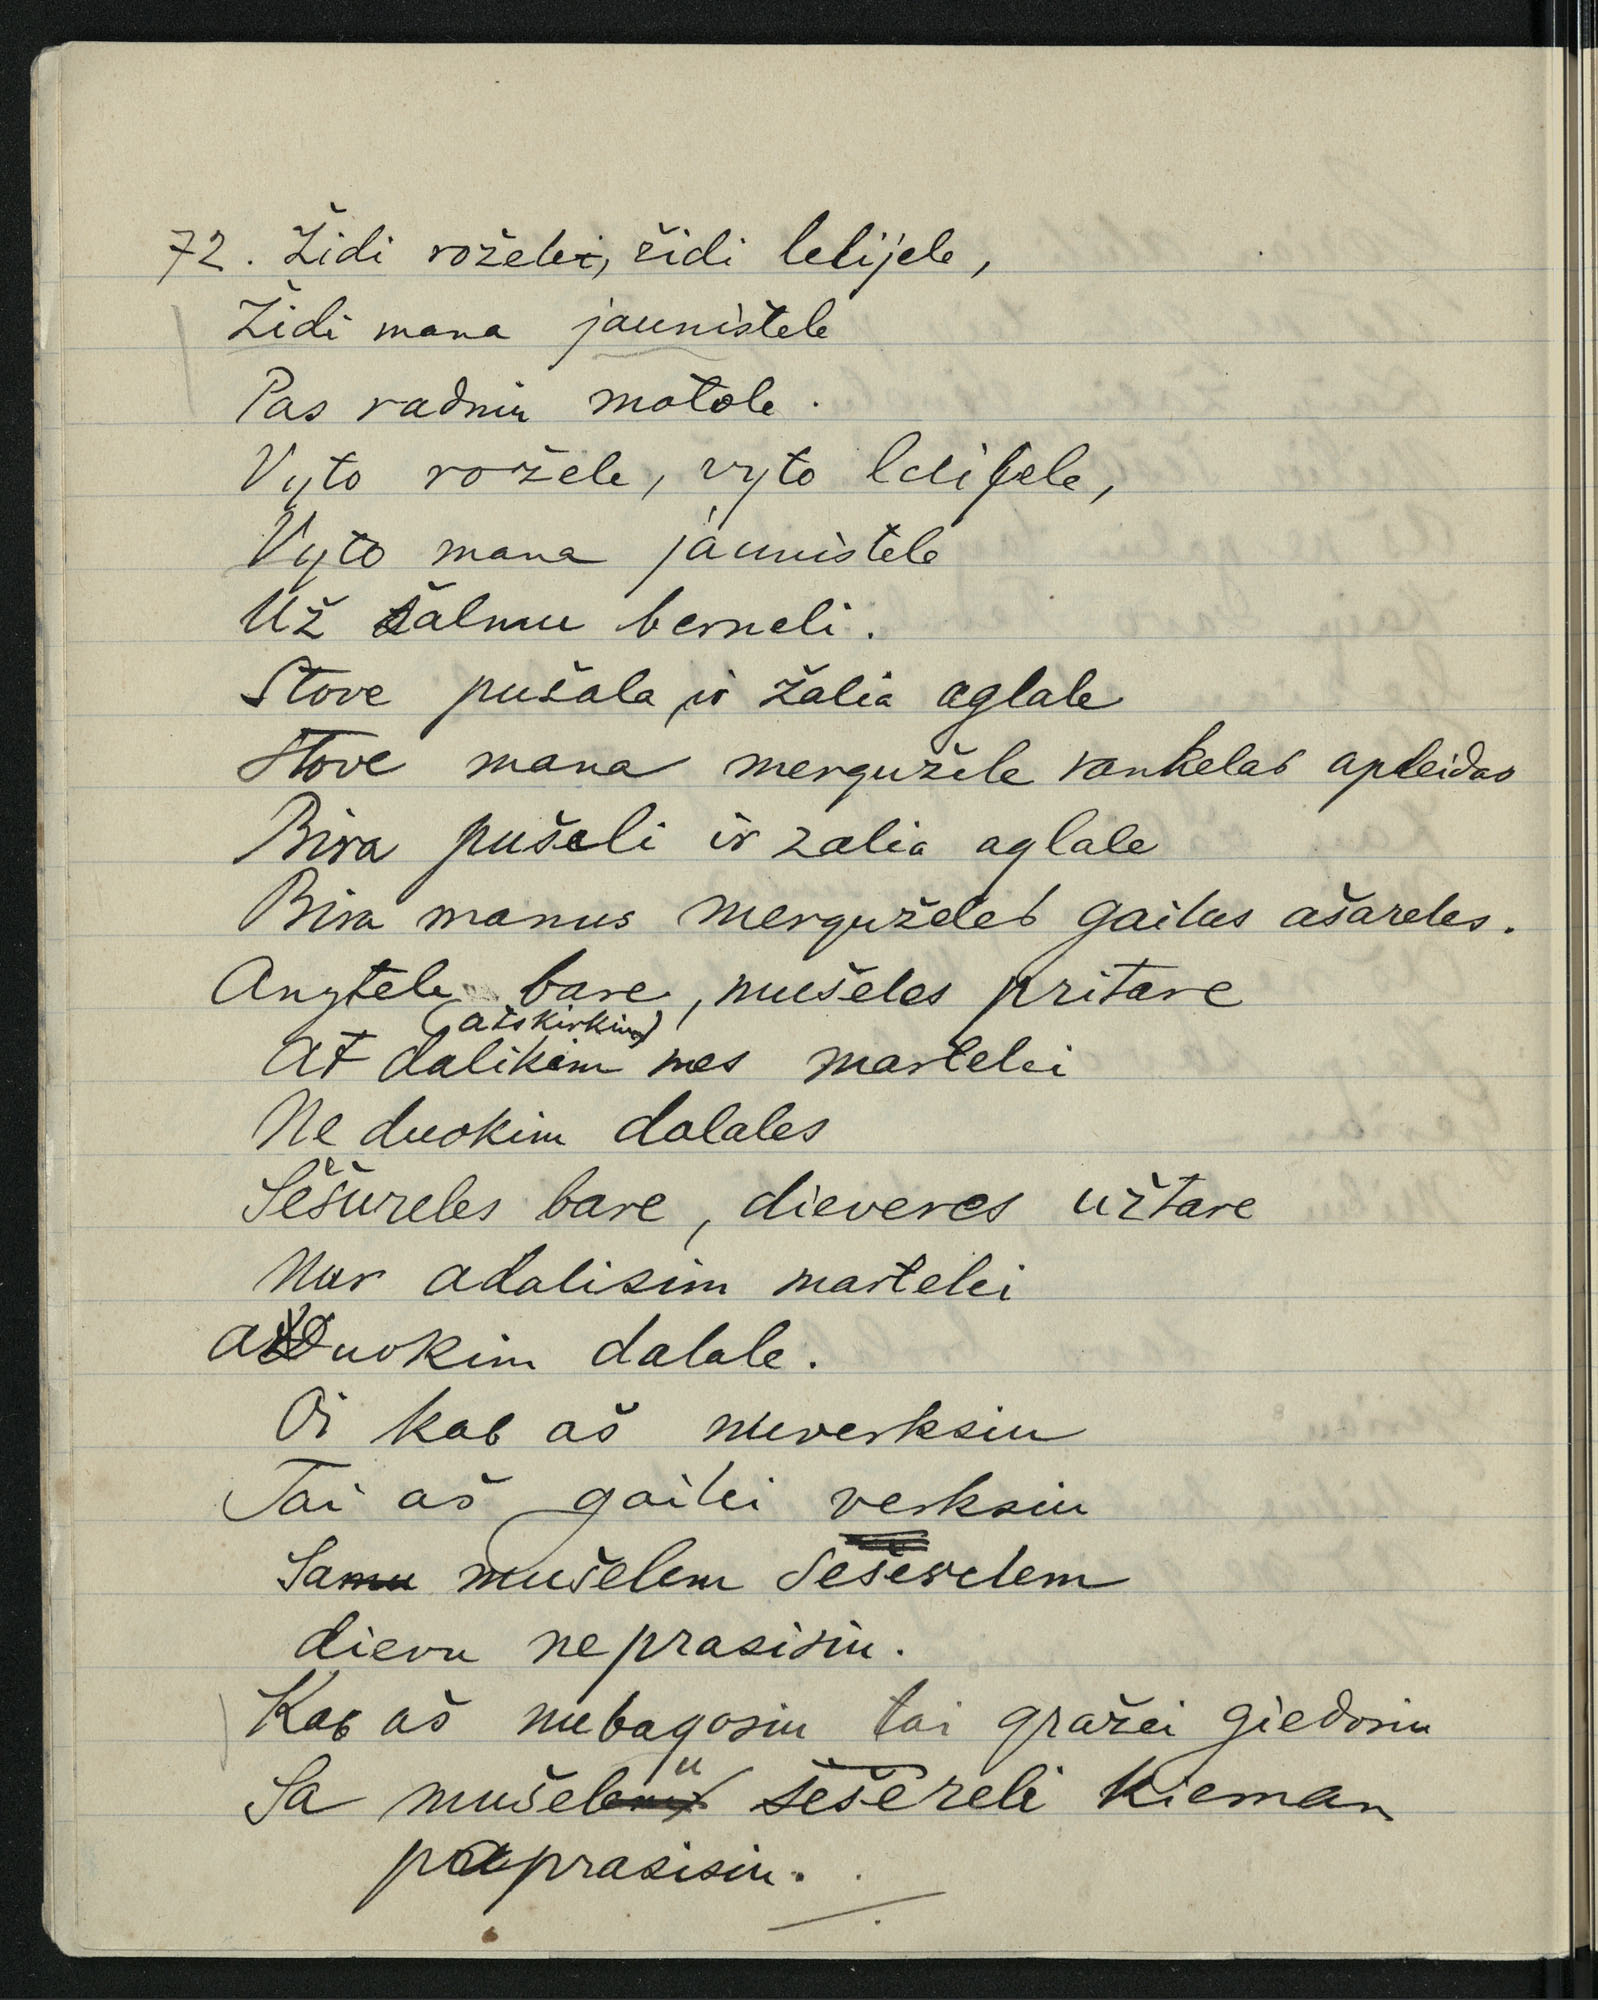 72. Židi roželei, židi lelijele,
Židi mana jaunistele
Pas radniu motole.
Vyto rožele, vyto lelijele,
Vyto mana jaunistele
Už šalmu berneli.
Stove pušala ir žalia aglale
Stove mana mergužele rankelas apleidas
Bira pušeli ir zalia aglale
Bira manus merguželes gailus ašareles.
Anytele bare, mušeles pritare
(atskirkim)
At dalikim mes martelei
Ne duokim dalales
Sešureles bare, dieveres užtare
Mar adalisim martelei
Duokim dalale.
Oi kab aš nuverksiu
Tai aš gailei verksiu
Samu mušelem Sešerelem
dievu neprasisiu.
Kab aš nubagosiu tai gražei giedosiu
Sa mušeleni šešereli kieman
paprasisiu.